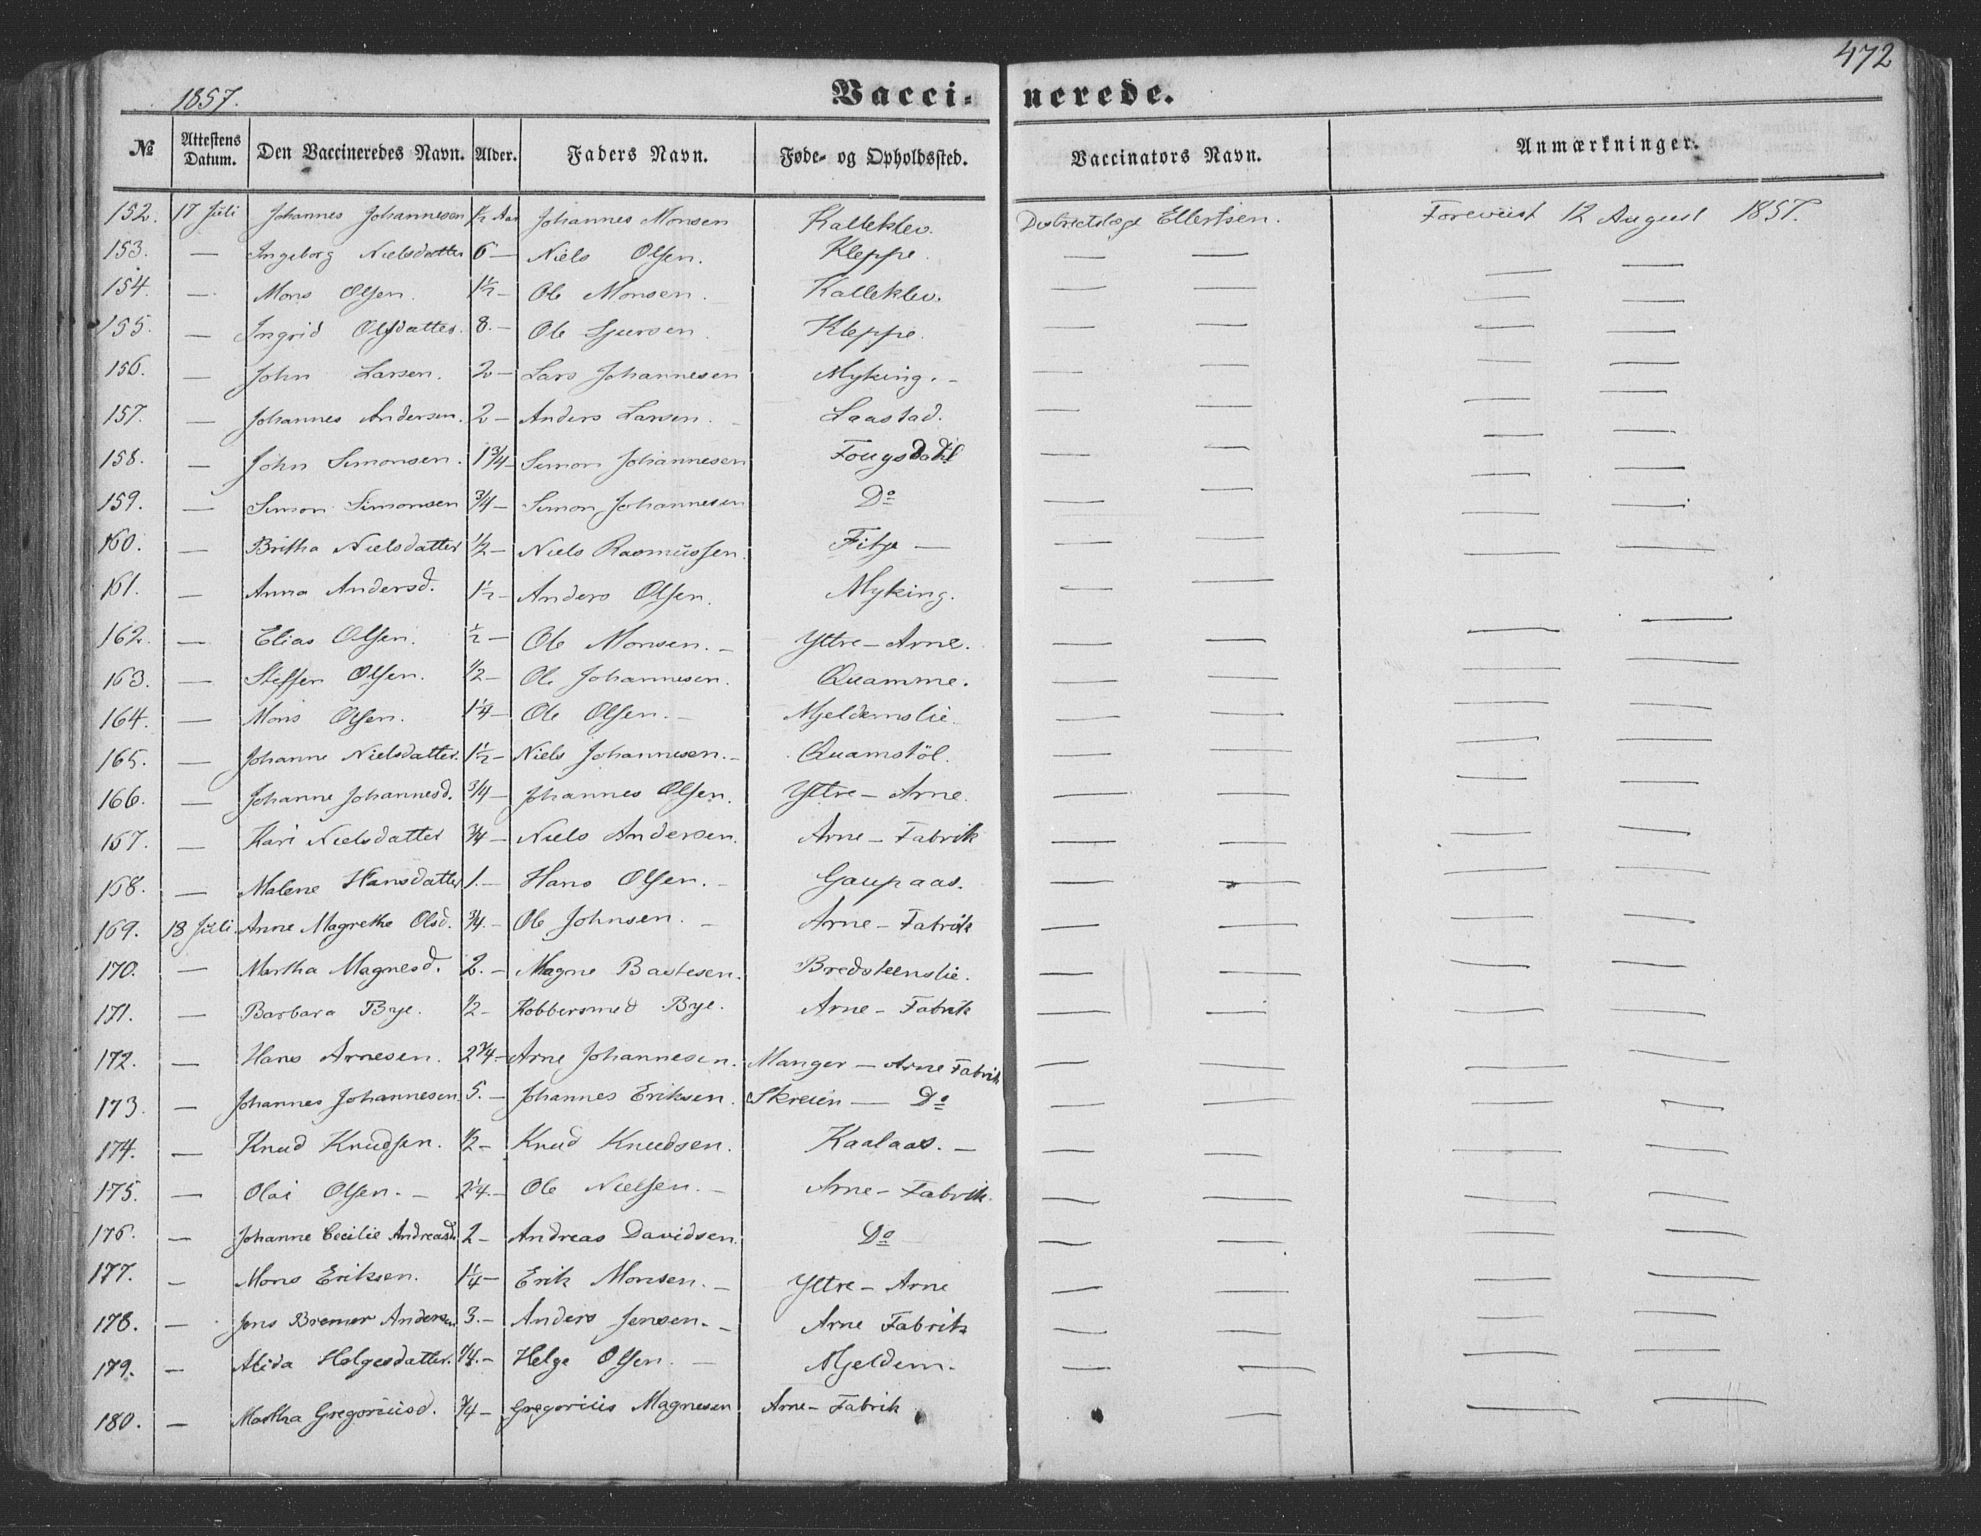 472
1857. Vaccinerede.
№ Attestens Datum. Den Vaccineredes Navn. Alder. Faders Navn. Føde- og Opholdssted. Vaccinators Navn. Anmærkninger.
152. 17 Juli Johannes Johannesen 1½ Aar Johannes Monsen Kalleklev. Districtslæge Ellertsen. Foreviist 12 August 1857.
153. — Ingeborg Nielsdatter 6 — Niels Olsen. Kleppe. — — — —
154. — Mons Olsen. 1½ — Ole Monsen. Kalleklev. — — — —
155. — Ingrid Olsdatter. 8. — Ole Sjursen. Kleppe. — — — —
156. — John Larsen. 2 — Lars Johannesen Myking. — — — — —
157. — Johannes Andersen. 2 — Anders Larsen. — Laastad. — — — —
158. — John Simonsen. 1¾ — Simon Johannesen — — — —
159. — Simon Simonsen ¾ — Simon Johannesen Do — — — —
160. — Britha Nielsdatter ½ — Niels Rasmussen. Fitje — — — — —
161. — Anna Andersd. 1½ — Anders Olsen. Myking. — — — —
162. — Elias Olsen. ½ — Ole Monsen. — Yttre-Arne. — — — —
163. — Steffen Olsen. ½ — Ole Johannesen. Quamme. — — — —
164. — Mons Olsen. 1¼ — Ole Olsen. — Mjeldemslie. — — — —
165. — Johanne Nielsdatter. 1½ — Niels Johannesen. — Quamstöl. — — — —
166. — Johanne Johannesd. ¾ — Johannes Olsen. Yttre-Arne. — — — —
167. — Kari Nielsdatter ¾ — Niels Andersen. Arne-Fabrik — — — —
168. — Malene Hansdatter 1. — Hans Olsen. — Gaupaas. — — — —
169. 18 Juli. Anne Magrethe Olsd. ¾. — Ole Johnsen. — Arne-Fabrik — — — —
170. — Martha Magnesd. 2. — Magne Bastesen. Bredsteenslie. — — — —
171. — Barbara Bye. ½ — Kobbersmed Bye. Arne-Fabrik — — — —
172. — Hans Arnesen. 2¾ — Arne Johannesen. Manger — Arne Fabrik — — — —
173. — Johannes Johannesen. 5. — Johannes Eriksen. Skreien — Do — — — —
174. — Knud Knudsen. ½ — Knud Knudsen. Kaalaas. — — — — —
175. — Olai Olsen. — 2¼. — Ole Nielsen. — Arne-Fabrik. — — — —
176. — Johanne Cecilie Andreasd. 2 — Andreas Davidsen. Do — — — —
177. — Mons Eriksen. 1¼ — Erik Monsen. — Yttre-Arne — — — —
178. — Jens Bremer Andersen 3. — Anders Jensen. — Arne Fabrik — — — —
179. — Alida Helgesdatter. ¼. — Helge Olsen. — Mjeldem. — — — —
180. — Martha Gregoriusd. ¾ — Gregorius Magnesen Arne-Fabrik — — —